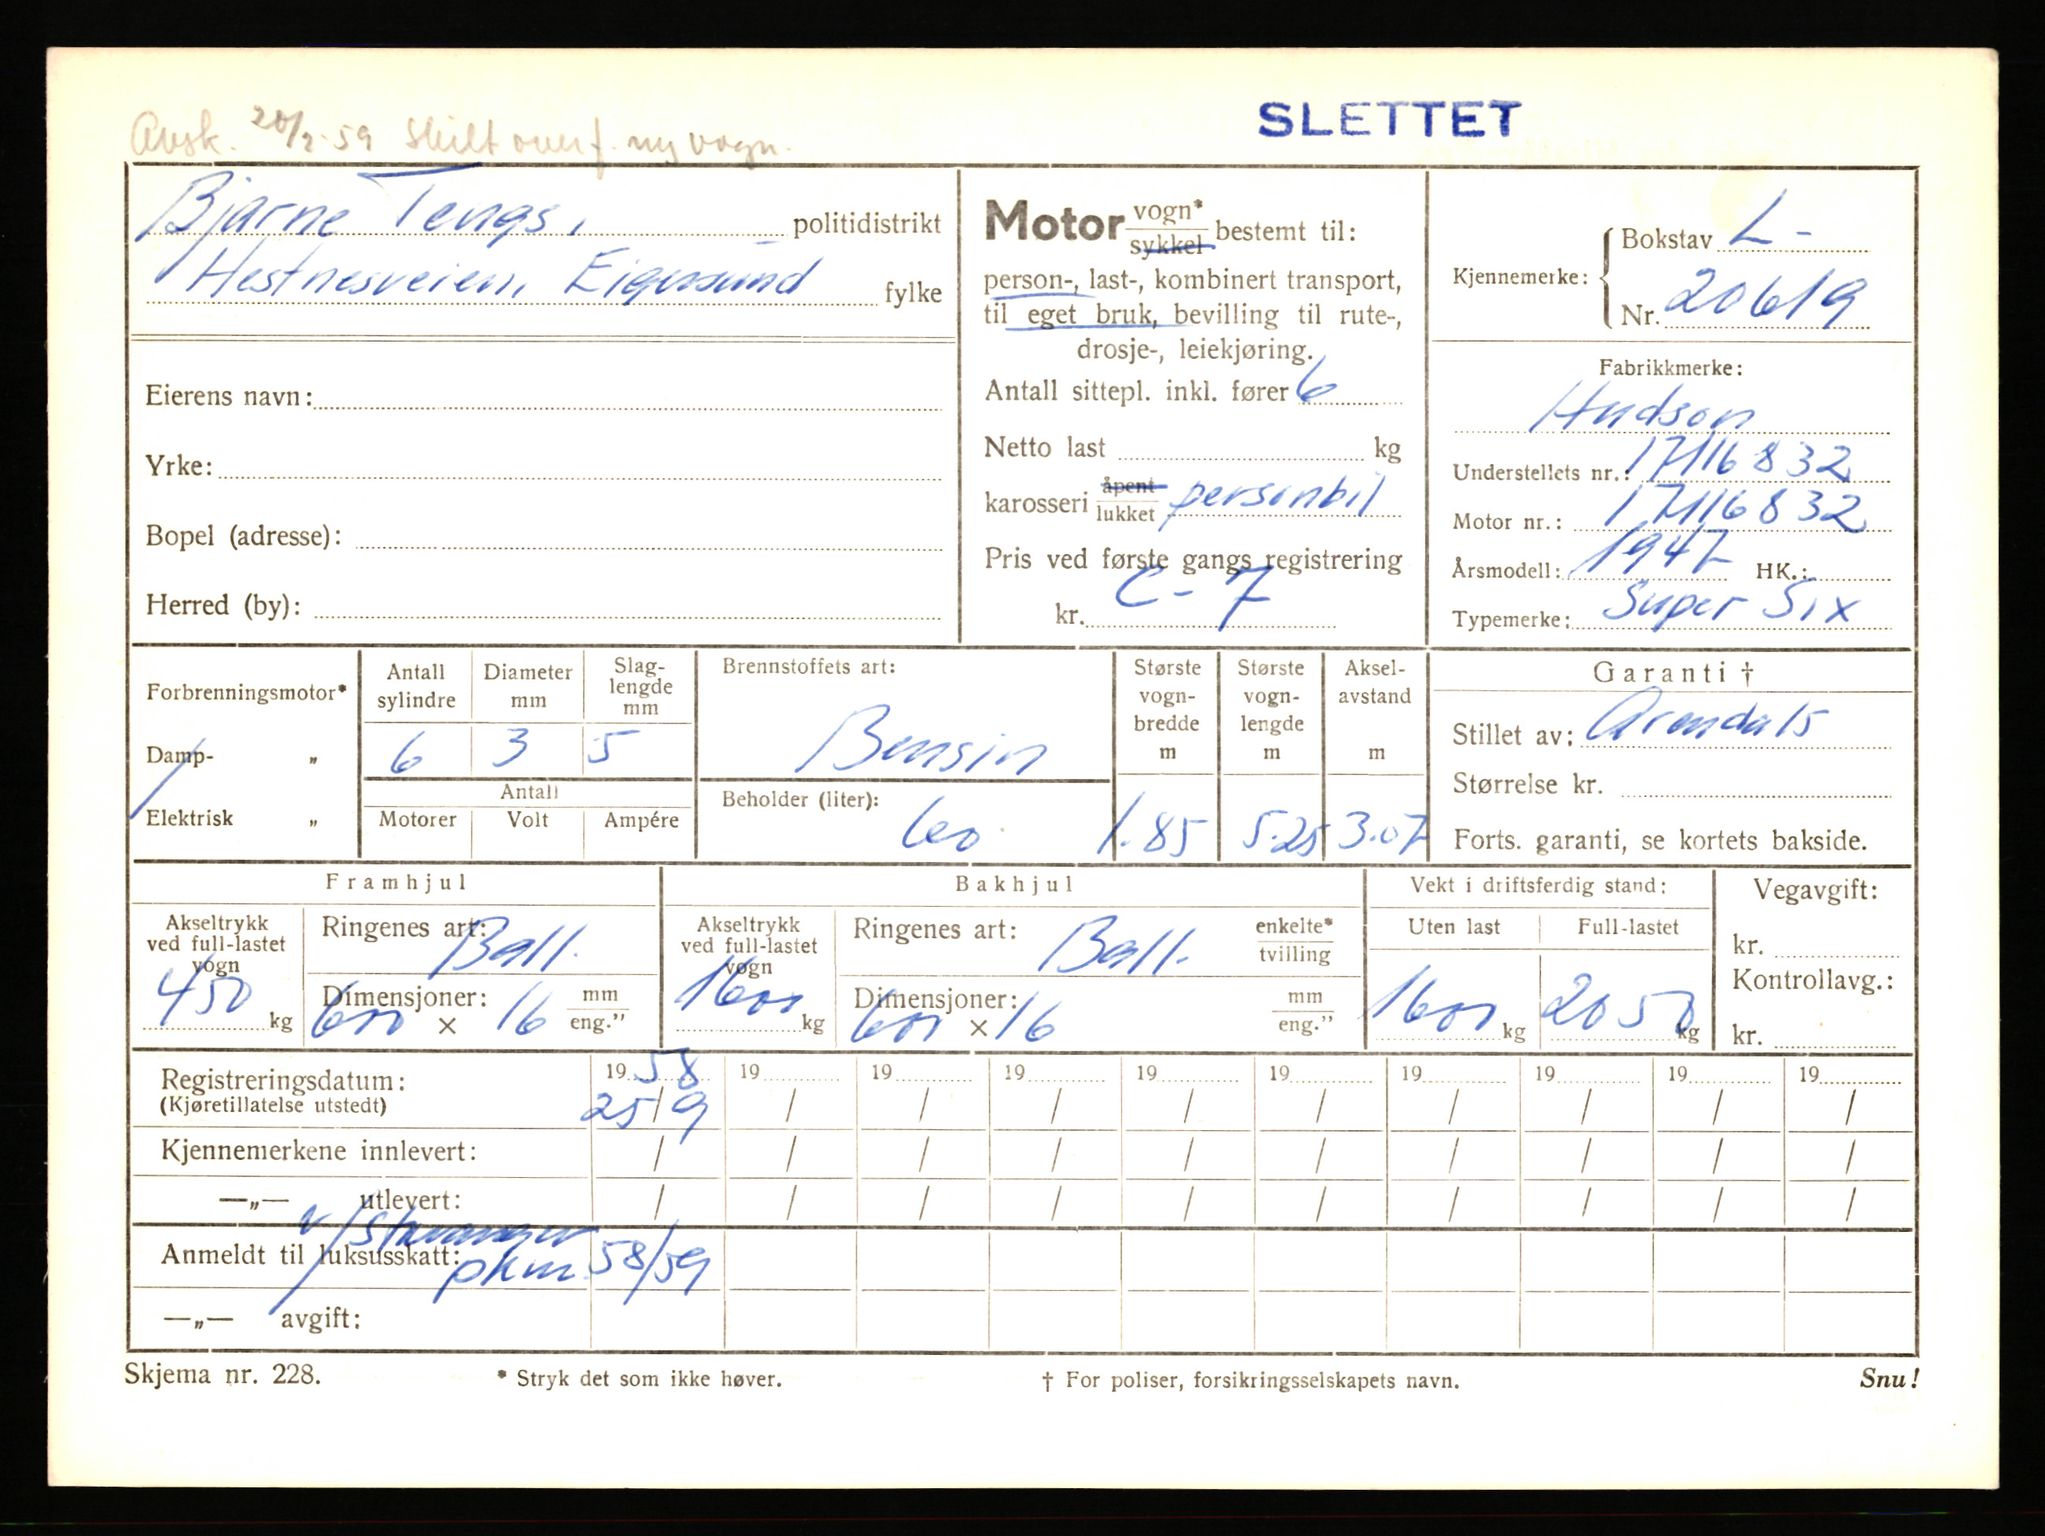 SLETTET
Avsk. 20/2-59 Skilt overf. ny vogn.
Bjarne Tengs, politidistrikt
Hestnesveien, Eigersund fylke
Eierens navn:
Yrke:
Bopel (adresse):
Herred (by):
Motor vogn* sykkel bestemt til:
person-, last-, kombinert transport,
til eget bruk, bevilling til rute-,
drosje-, leiekjøring.
Antall sittepl. inkl. fører 6
Netto last kg
karosseri åpent lukket personbil
Pris ved første gangs registrering
kr. C-7
Kjennemerke: Bokstav L-
Nr. 20619
Fabrikkmerke:
Hudson
Understellets nr.: 17116832
Motor nr.: 17116832
Årsmodell: 1947 HK.:
Typemerke: Super Six
Forbrenningsmotor*
Damp- „
Elektrisk „
Antall sylindre Diameter mm Slag-lengde mm
6 3 5
Antall
Motorer Volt Ampére
Brennstoffets art:
Bensin
Beholder (liter):
60
Største vogn-bredde m
1.85
Største vogn-lengde m
5.25
Aksel-avstand m
3.07
Garanti †
Stillet av: Arendals
Størrelse kr.
Forts. garanti, se kortets bakside.
Framhjul
Akseltrykk ved full-lastet vogn
450 kg
Ringenes art: Ball.
Dimensjoner: 600 × 16 mm eng.”
Bakhjul
Akseltrykk ved full-lastet vogn
1600 kg
Ringenes art: Ball. enkelte* tvilling
Dimensjoner: 600 × 16 mm eng.”
Vekt i driftsferdig stand:
Uten last Full-lastet
1600 kg 2050 kg
Vegavgift:
kr.
Kontrollavg.:
kr.
Registreringsdatum: 19 58 19 19 19 19 19 19 19 19 19
(Kjøretillatelse utstedt) 25/9 / / / / / / / / /
Kjennemerkene innlevert: / / / / / / / / / /
—„— utlevert: / / / / / / / / / /
v/Stavanger
Anmeldt til luksusskatt: pkm 58/59
—„— avgift:
Skjema nr. 228. * Stryk det som ikke høver. † For poliser, forsikringsselskapets navn. Snu!